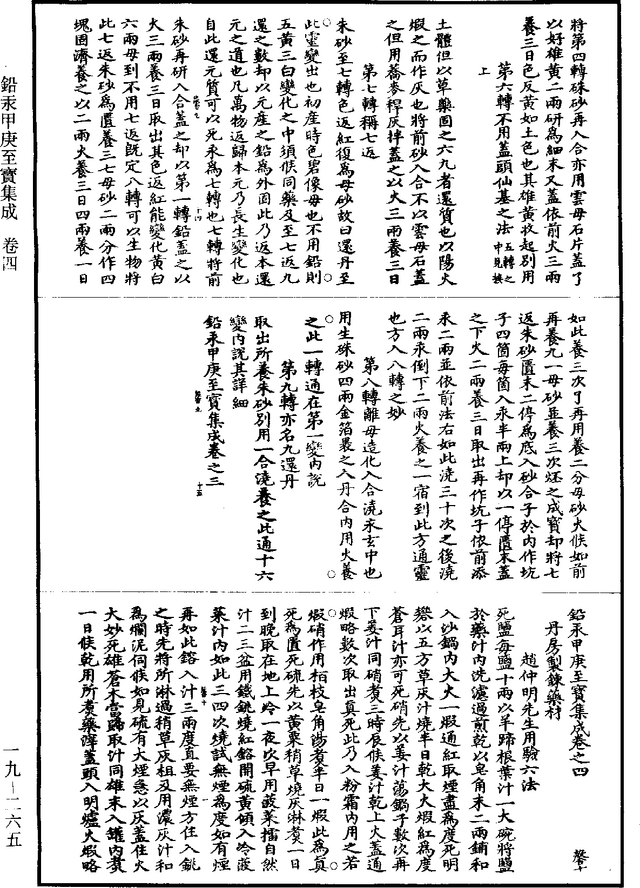 鉛汞甲庚至寶集成　卷四
一九–二六五
將第四轉硃砂再入合亦用雲母石片蓋了
以好雄黃二兩研爲細末又蓋依前火三兩
養三日色反黃如土色也其雄黃收起別用
第六轉不用蓋頭仙基之法五轉之中見換
上
土體但以草藥固之六九者還質也以陽火
煆之而作灰也將前砂入合不以雲母石蓋
之但用蕎麥稈灰拌蓋之以火三兩養三日
第七轉稱七返
朱砂至七轉色返紅復爲母砂故曰還丹至
此靈變出也初産時色碧像母也不用鉛則
五黃三白變化之中須候同藥及至七返九
還之數却以元産之鉛爲外固此乃返本還
元之道也凡萬物返歸本元乃長生變化也
自此還元質可以死汞爲七轉也七轉將前
朱砂再研入合蓋之却以第一轉鉛蓋之以
火三兩養三日取出其色返紅能變化黃白
六兩母到不用七返既定八轉可以生物將
此七返朱砂爲匱養三七母砂二兩分作四
塊固濟養之以二兩火養三日四兩養一日
如此養三次了再用養二分母砂火候如前
再養九一母砂並養三次煅之成寶却將七
返朱砂匱末二停爲底入砂合子於內作坑
子四箇每箇入汞半兩上却以一停匱末蓋
之下火二兩養三日取出再作坑子依前添
汞二兩並依前法右如此澆三十次之後澆
二兩汞倒下二兩火養之一宿到此方通靈
也方入八轉之妙
第八轉離母造化入合澆汞玄中也
用生硃砂四兩金箔裹之入丹合內用火養
之此一轉通在第一變內說
第九轉亦名九還丹
取出所養朱砂別用一合澆養之此通十六
變內說其詳細
鉛汞甲庚至寶集成卷之三
鉛汞甲庚至寶集成卷之四
丹房製鍊藥材
趙仲明先生用驗六法
死鹽每鹽十兩以羊蹄根葉汁一大碗將鹽
於藥汁內洗濾過煎乾以皂角末二兩鋪和
入沙鍋內大火一煆通紅取煙盡爲度死明
礬以五方草灰汁燒半日乾大火煆紅爲度
蒼耳汁亦可死硝先以姜汁蕩鍋子數次再
下姜汁同硝煮三時辰候姜汁乾上火蓋通
煆略數次取出真死此乃入粉霜內用之若
煆硝作用栢枝皂角湯煮半日一煆此爲真
死爲匱死硫先以黃粟稍草燒灰淋煮一日
到晚取在地上冷一夜以早用菠菜擂自然
汁二三盆用鐵銚燒紅鎔開硫黃傾入冷菠
菜汁內如此三四次燒試無煙爲度如有煙
再如此鎔入汁三兩度直要無煙方住入銚
之時先將所淋過稍草灰柤及用濃灰汁和
爲爛泥伺候如見硫有大煙急以灰蓋住火
大妙死雄蒼朮當歸取汁同雄末入罐內煮
一日候乾用所煮藥滓蓋頭入明爐火煆略